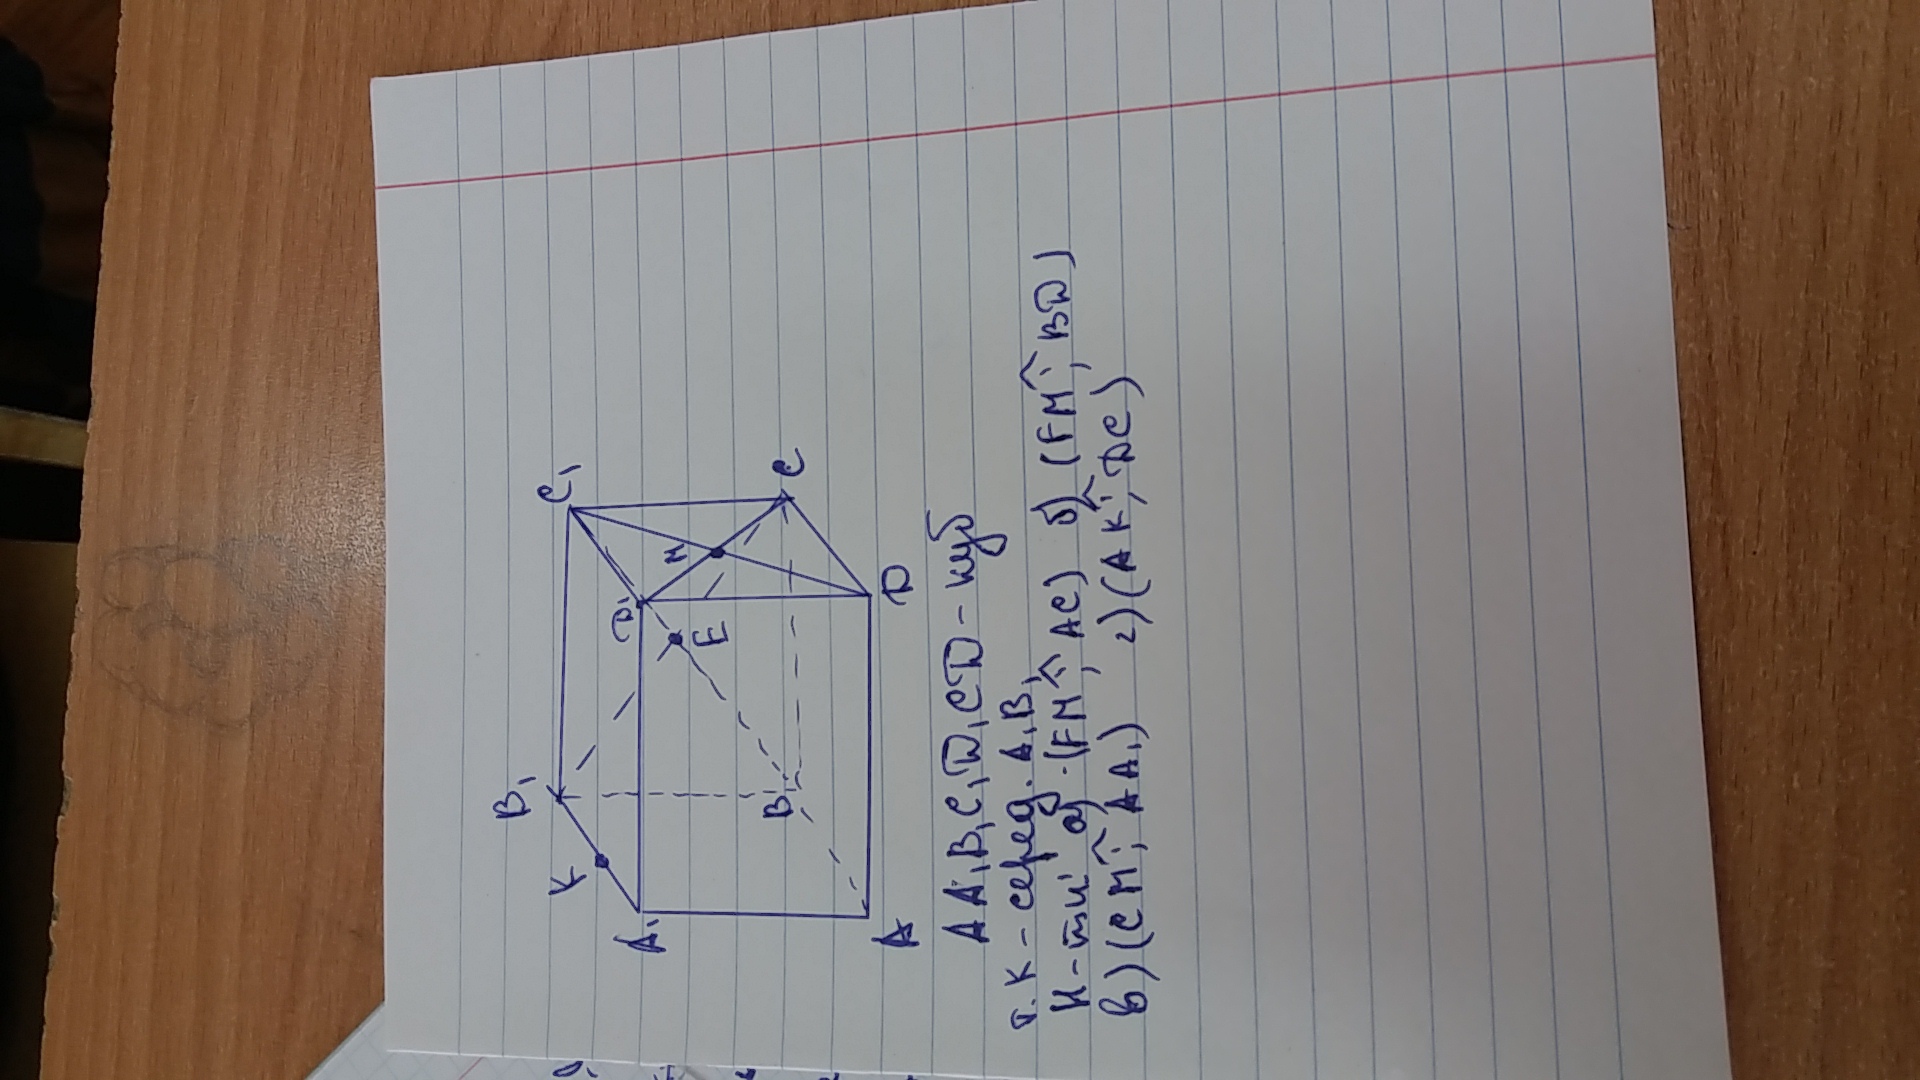 B₁
C₁
K
A₁
D₁
M
F
B
C
A
D
AA₁B₁C₁D₁CD - куб
т. K - серед. A₁B₁
а) (FM^; AC) б) (FM^; BD)
в) (CM^; AA₁) г) (AK^; DC)